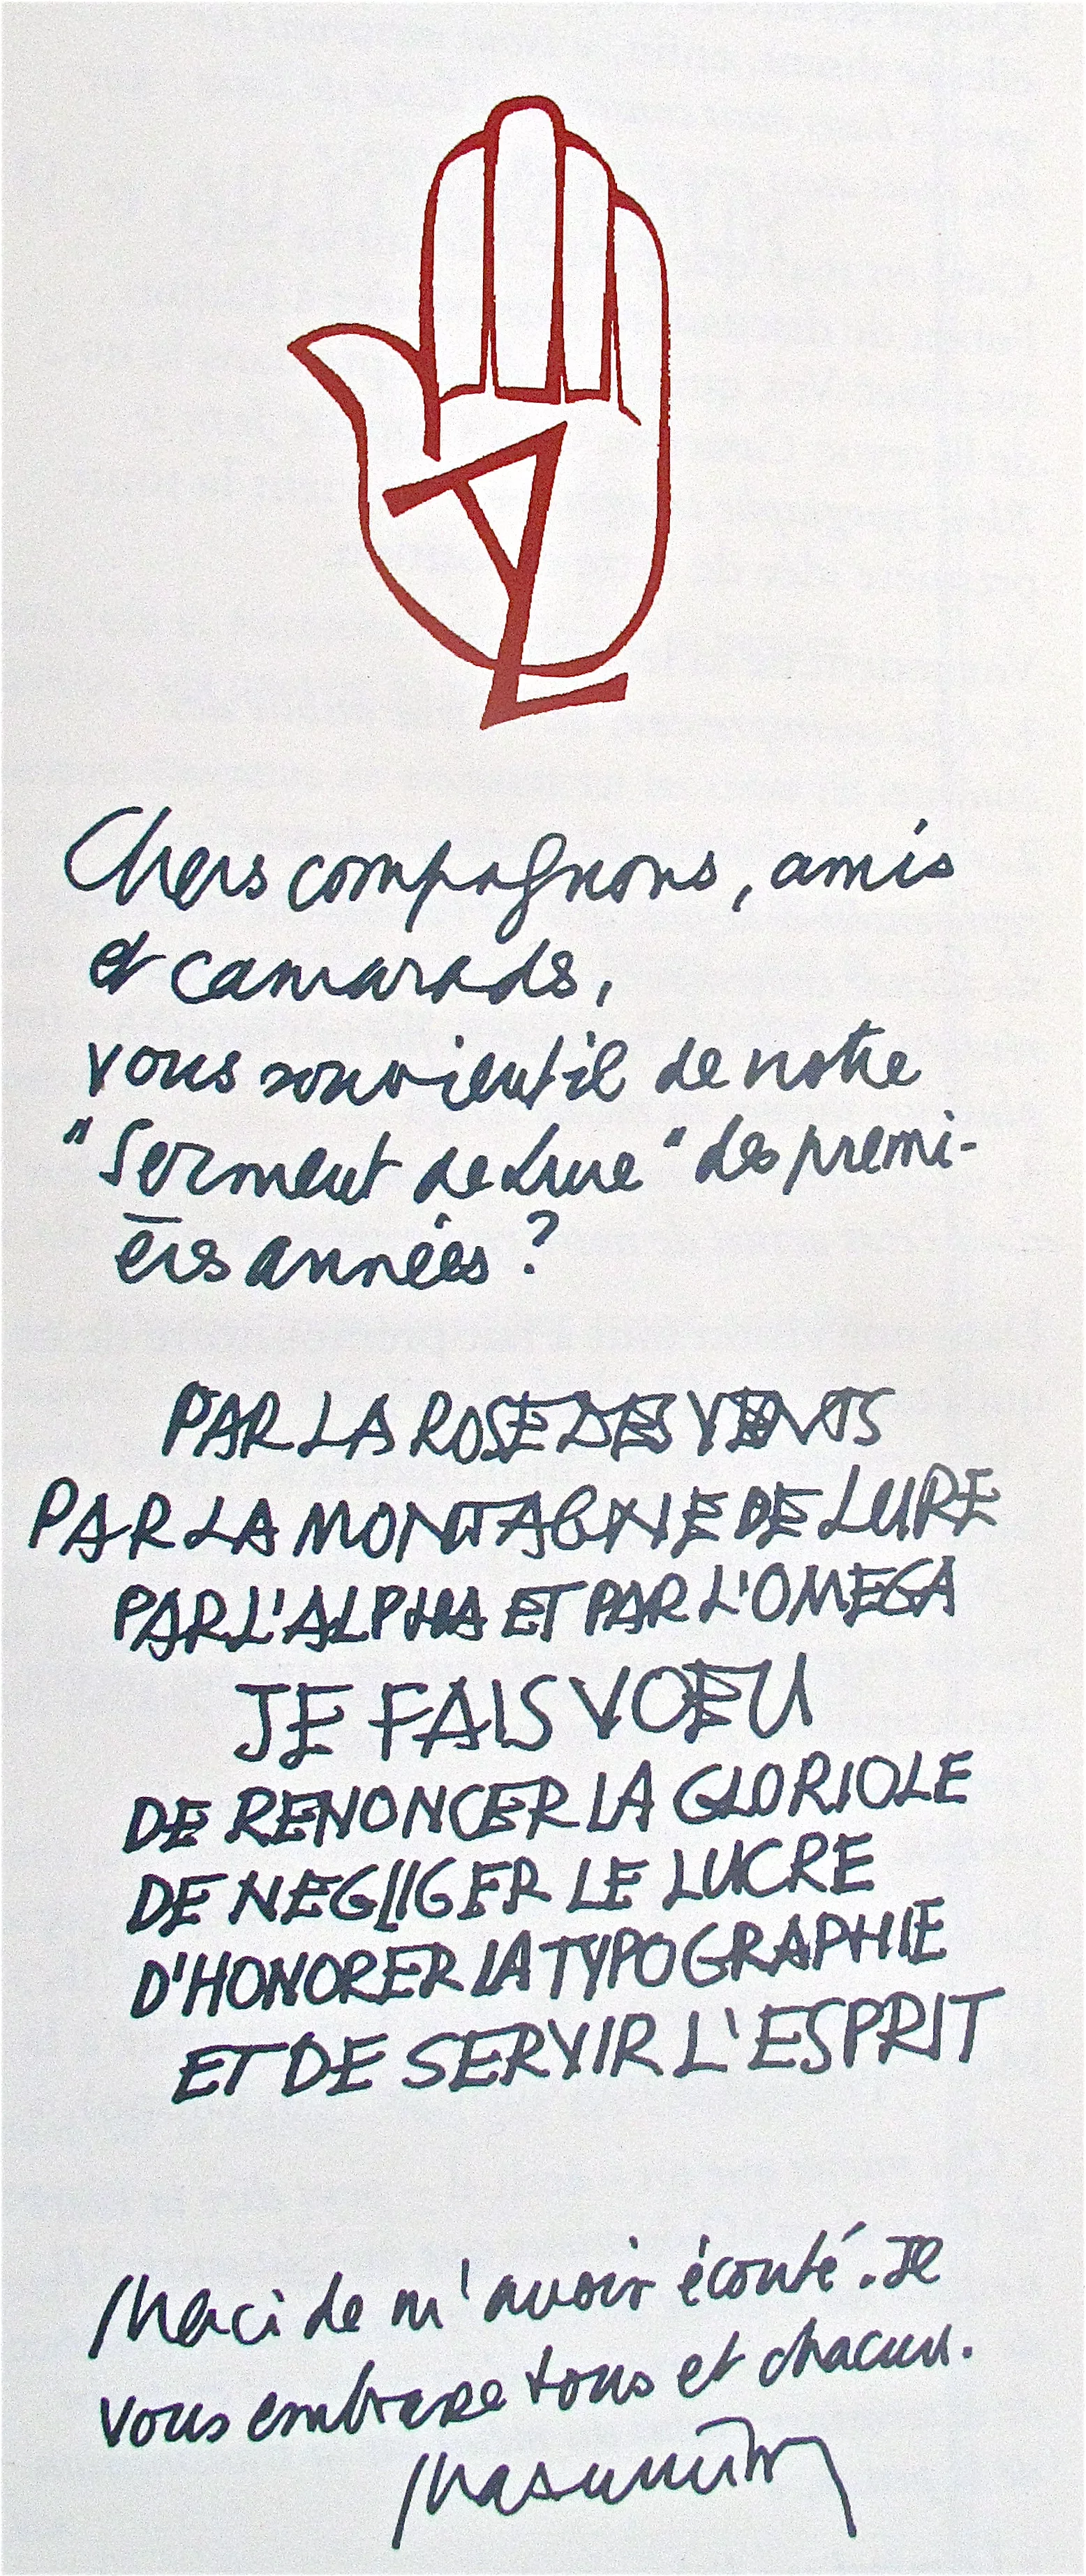 Chers compagnons, amis
et camarades,
vous souvient il de notre
"Serment de Lure" des premi-
ères années ?
PAR LA ROSE DES VENTS
PAR LA MONTAGNE DE LURE
PAR L'ALPHA ET PAR L'OMEGA
JE FAIS VOEU
DE RENONCER LA GLORIOLE
DE NEGLIGER LE LUCRE
D'HONORER LA TYPOGRAPHIE
ET DE SERVIR L'ESPRIT
Merci de m'avoir écouté. Je
vous embrasse tous et chacun.